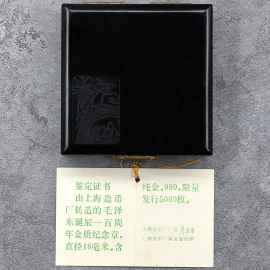 鉴定证书
由上海造币
厂铸造的毛泽
东诞辰一百周
年金质纪念章，
直径18毫米，含
纯金.999，限量
发行5000枚。
上海造币厂厂长